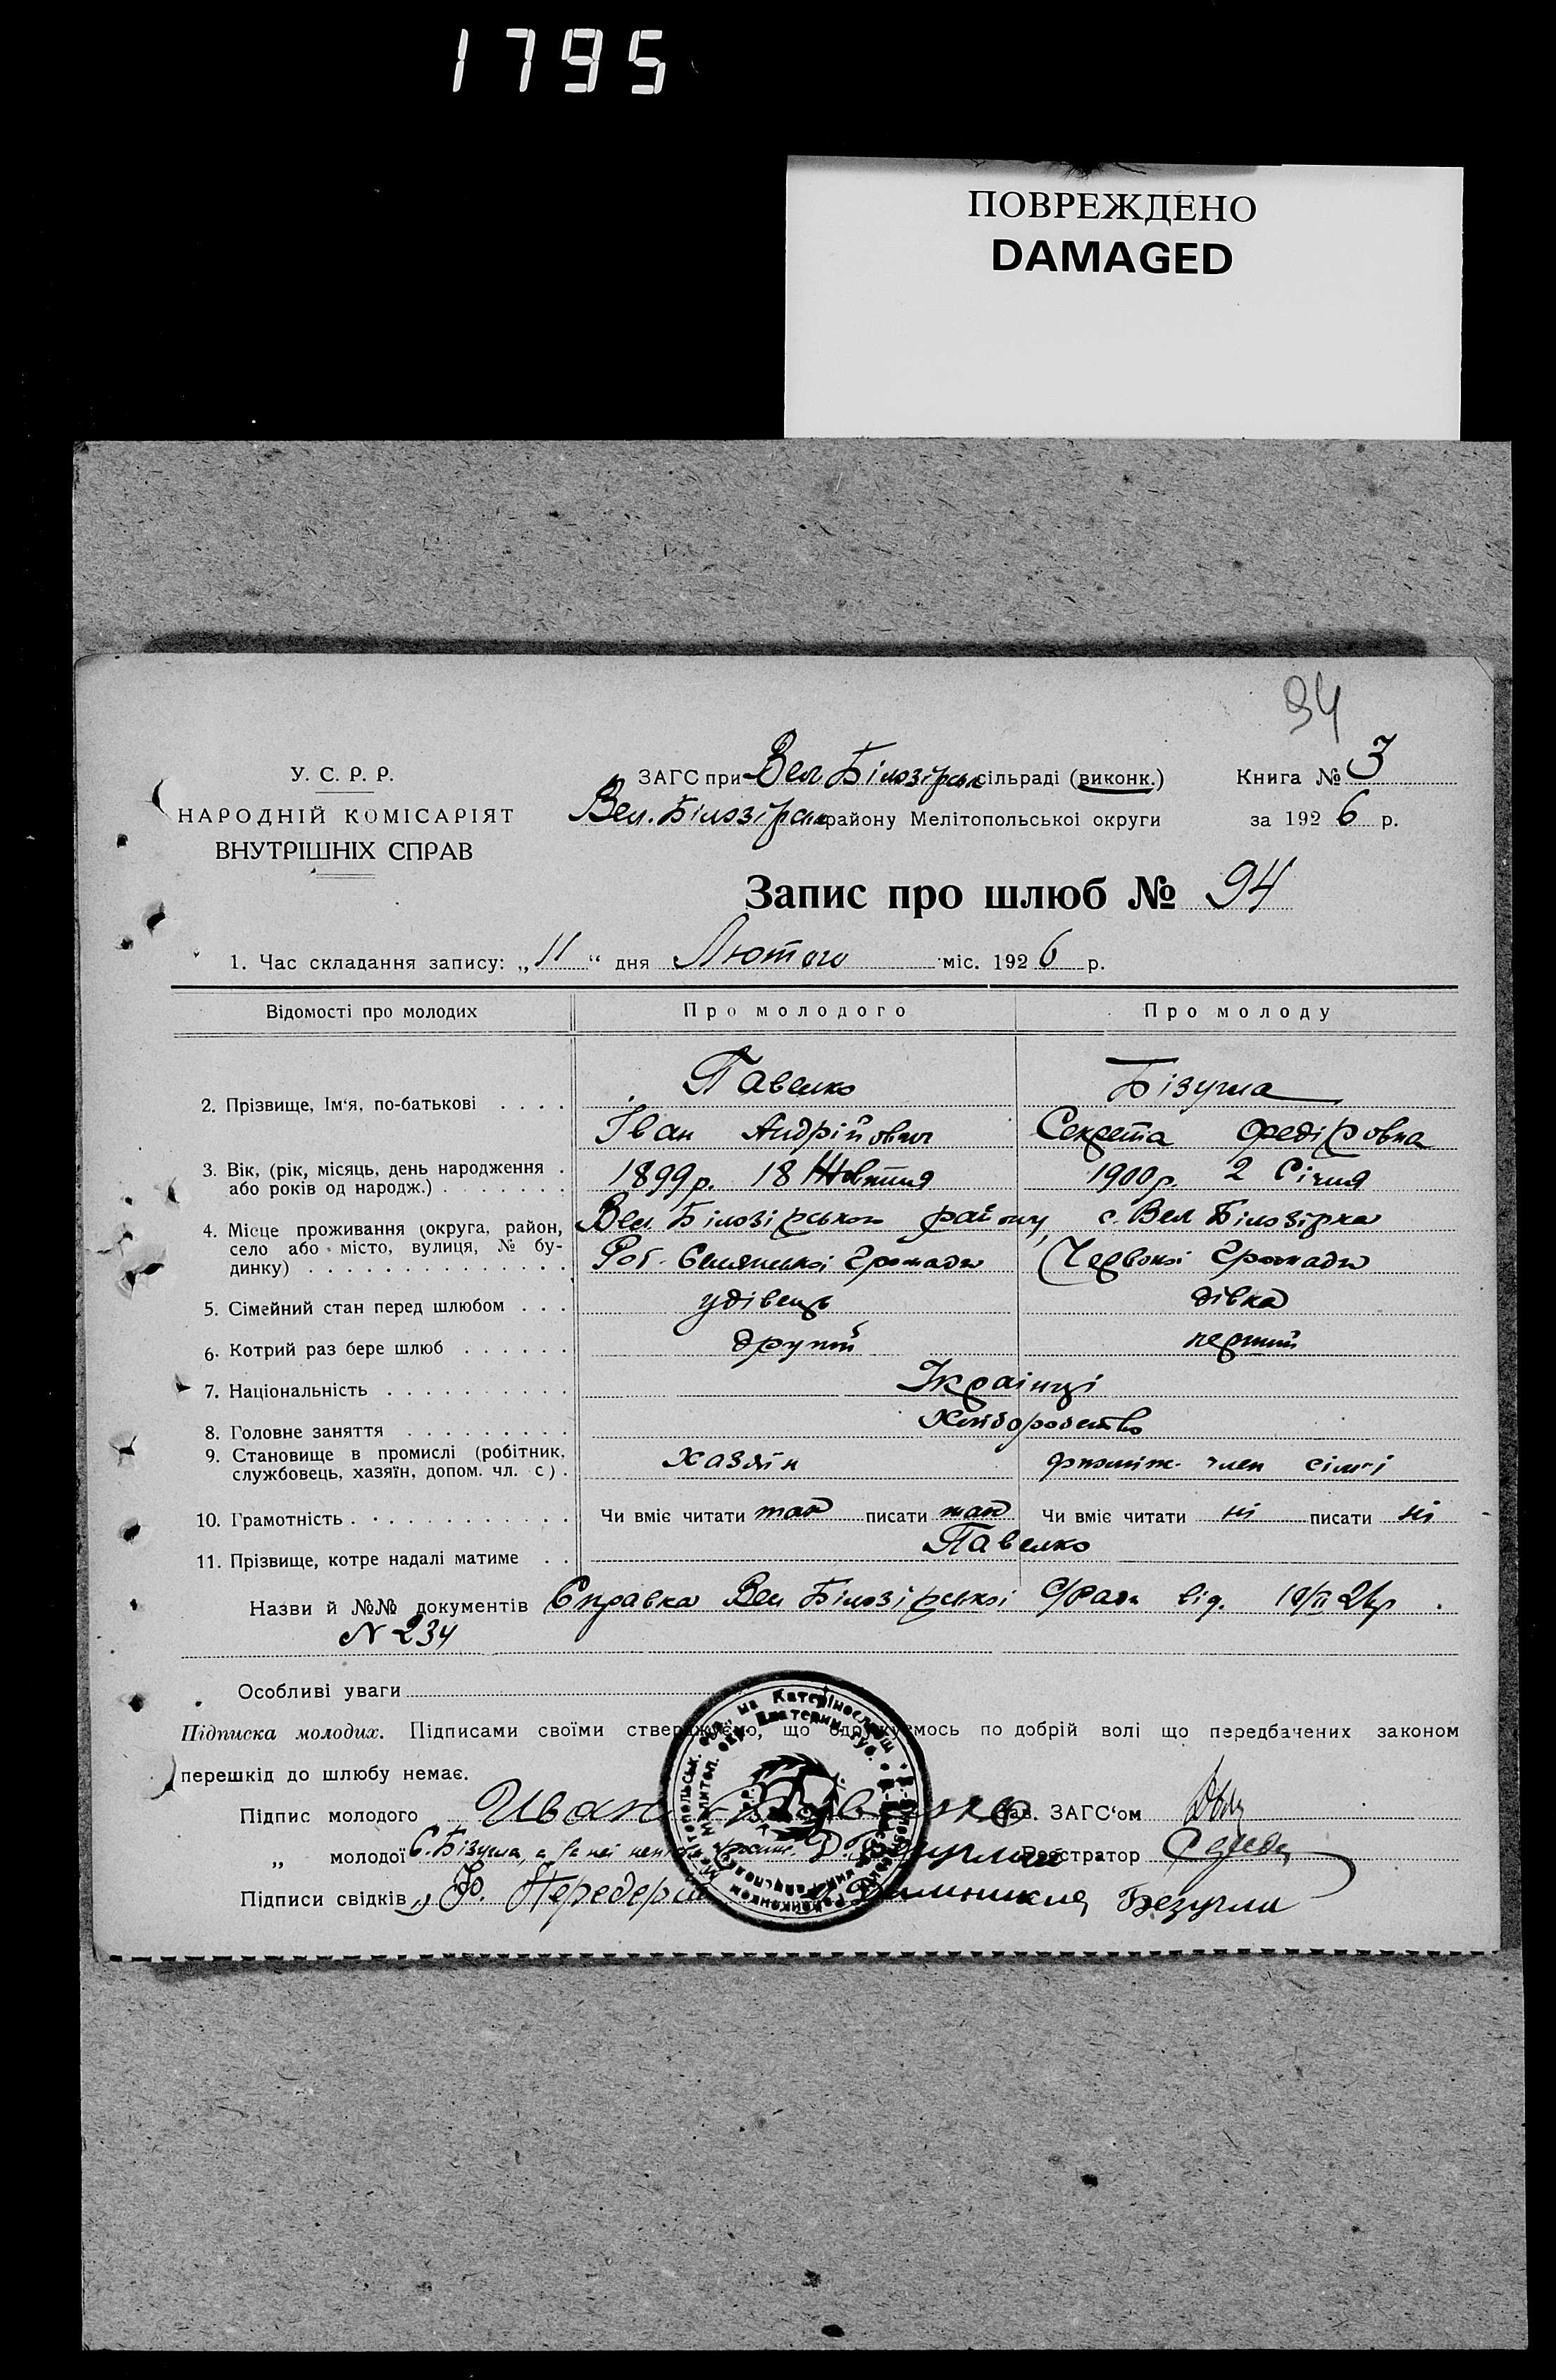 1795
ПОВРЕЖДЕНО
DAMAGED
94
У. С. Р. Р.
НАРОДНІЙ КОМІСАРІЯТ
ВНУТРІШНІХ СПРАВ
ЗАГС при Вел. Білозірськ сільраді (виконк.)
Вел. Білозірськ району Мелітопольської округи
Книга № 3
за 1926 р.
Запис про шлюб № 94
1. Час складання запису: „11“ дня Лютого міс. 1926 р.
Відомості про молодих Про молодого Про молоду
2. Прізвище, Ім‘я, по-батькові . . . . Павелко Бізугла
Іван Андрійович Секлета Федіровна
3. Вік, (рік, місяць, день народження .
або років од народж.) . . . . . . . 1899 р. 18 Жовтня 1900 р. 2 Січня
4. Місце проживання (округа, район,
село або місто, вулиця, № бу-
динку) . . . . . . . . . . . . . .
Вел Білозірського району, с. Вел Білозірка
Роб. Селянської Громади Червоної Громади
5. Сімейний стан перед шлюбом . . . удівець дівка
6. Котрий раз бере шлюб . . . . . . другий перший
7. Національність . . . . . . . . . . Українці
8. Головне заняття . . . . . . . . . Хліборобство
9. Становище в промислі (робітник,
службовець, хазяїн, допом. чл. с) . хазяїн член сім'ї
10. Грамотність . . . . . . . . . . . . Чи вміє читати так писати так Чи вміє читати ні писати ні
11. Прізвище, котре надалі матиме . . Павелко
Назви й №№ документів Справка Вел Білозірської С/Ради від. 10/II 26 р.
N 234
Особливі уваги
Підписка молодих. Підписами своїми стверджуємо, що одружуємось по добрій волі що передбачених законом
перешкід до шлюбу немає.
Підпис молодого Иван Павелко Зав. ЗАГС‘ом
„ молодої С. Бізугла, а за неї Реєстратор
Підписи свідків Передерій Безугла